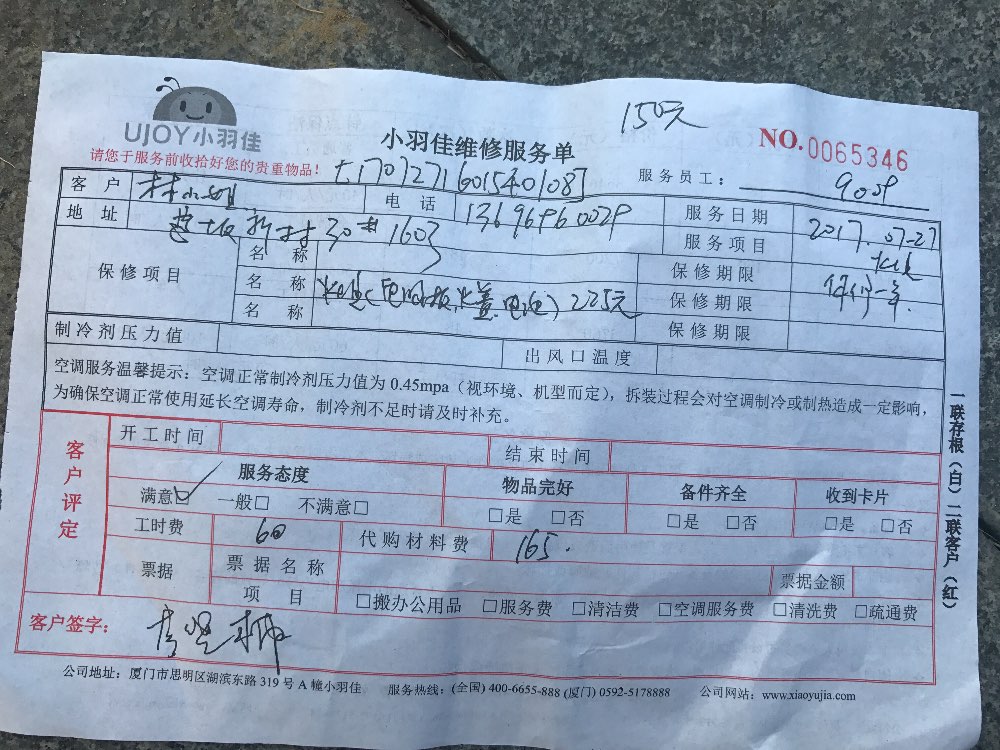 150元
UJOY小羽佳
小羽佳维修服务单
NO.0065346
请您于服务前收拾好您的贵重物品!
服务员工: 9009
客户 林小姐 电话 13696960029 服务日期 2017.07-27
地址 新村30#1603 服务项目
保修项目 名称 保修期限
名称 电池) 225元 保修期限
名称 保修期限
制冷剂压力值 出风口温度
空调服务温馨提示:空调正常制冷剂压力值为 0.45mpa(视环境、机型而定),拆装过程会对空调制冷或制热造成一定影响,
为确保空调正常使用延长空调寿命,制冷剂不足时请及时补充。
客户评定
开工时间 结束时间
服务态度 物品完好 备件齐全 收到卡片
满意☑ 一般□ 不满意□ □是 □否 □是 □否 □是 □否
工时费 60 代购材料费 165.
票据 票据名称 票据金额
项目 □搬办公用品 □服务费 □清洁费 □空调服务费 □清洗费 □疏通费
客户签字:
公司地址:厦门市思明区湖滨东路 319 号 A 幢小羽佳 服务热线:(全国) 400-6655-888 (厦门) 0592-5178888 公司网站:www.xiaoyujia.com
一联存根(白)二联客户(红)